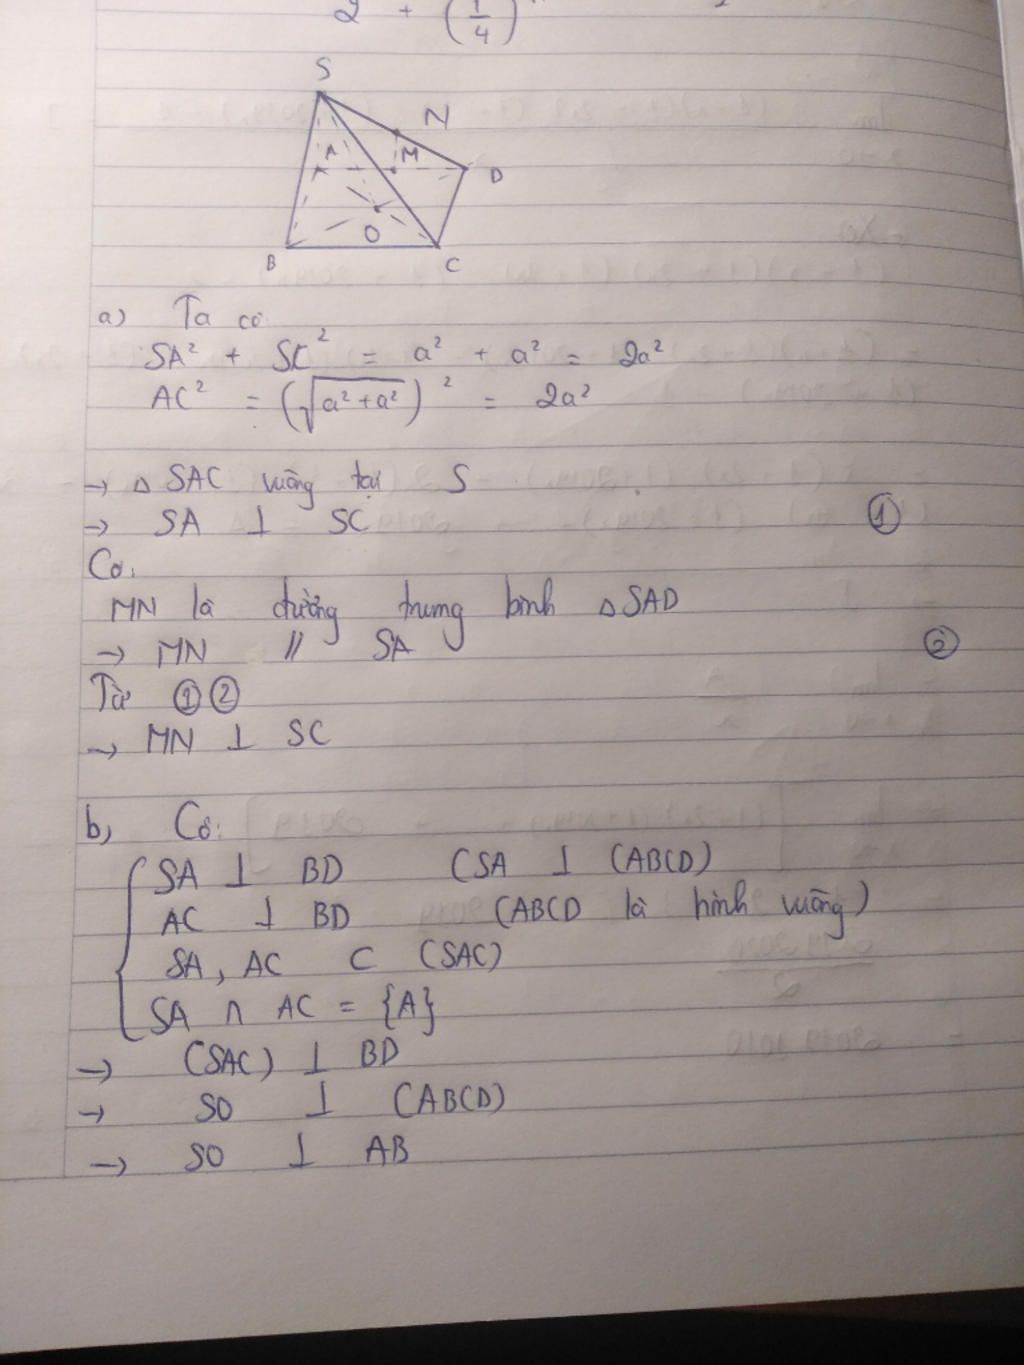 2 + (1/4)
S
N
A M D
O
B C
a) Ta có
SA² + SC² = a² + a² = 2a²
AC² = (√(a²+a²))² = 2a²
→ △ SAC vuông tại S
→ SA ⊥ SC ①
Có:
MN là đường trung bình △SAD
→ MN // SA ②
Từ ① ②
→ MN ⊥ SC
b) Có:
SA ⊥ BD (SA ⊥ (ABCD)
AC ⊥ BD (ABCD là hình vuông)
SA, AC ⊂ (SAC)
SA ∩ AC = {A}
→ (SAC) ⊥ BD
→ SO ⊥ (ABCD)
→ SO ⊥ AB